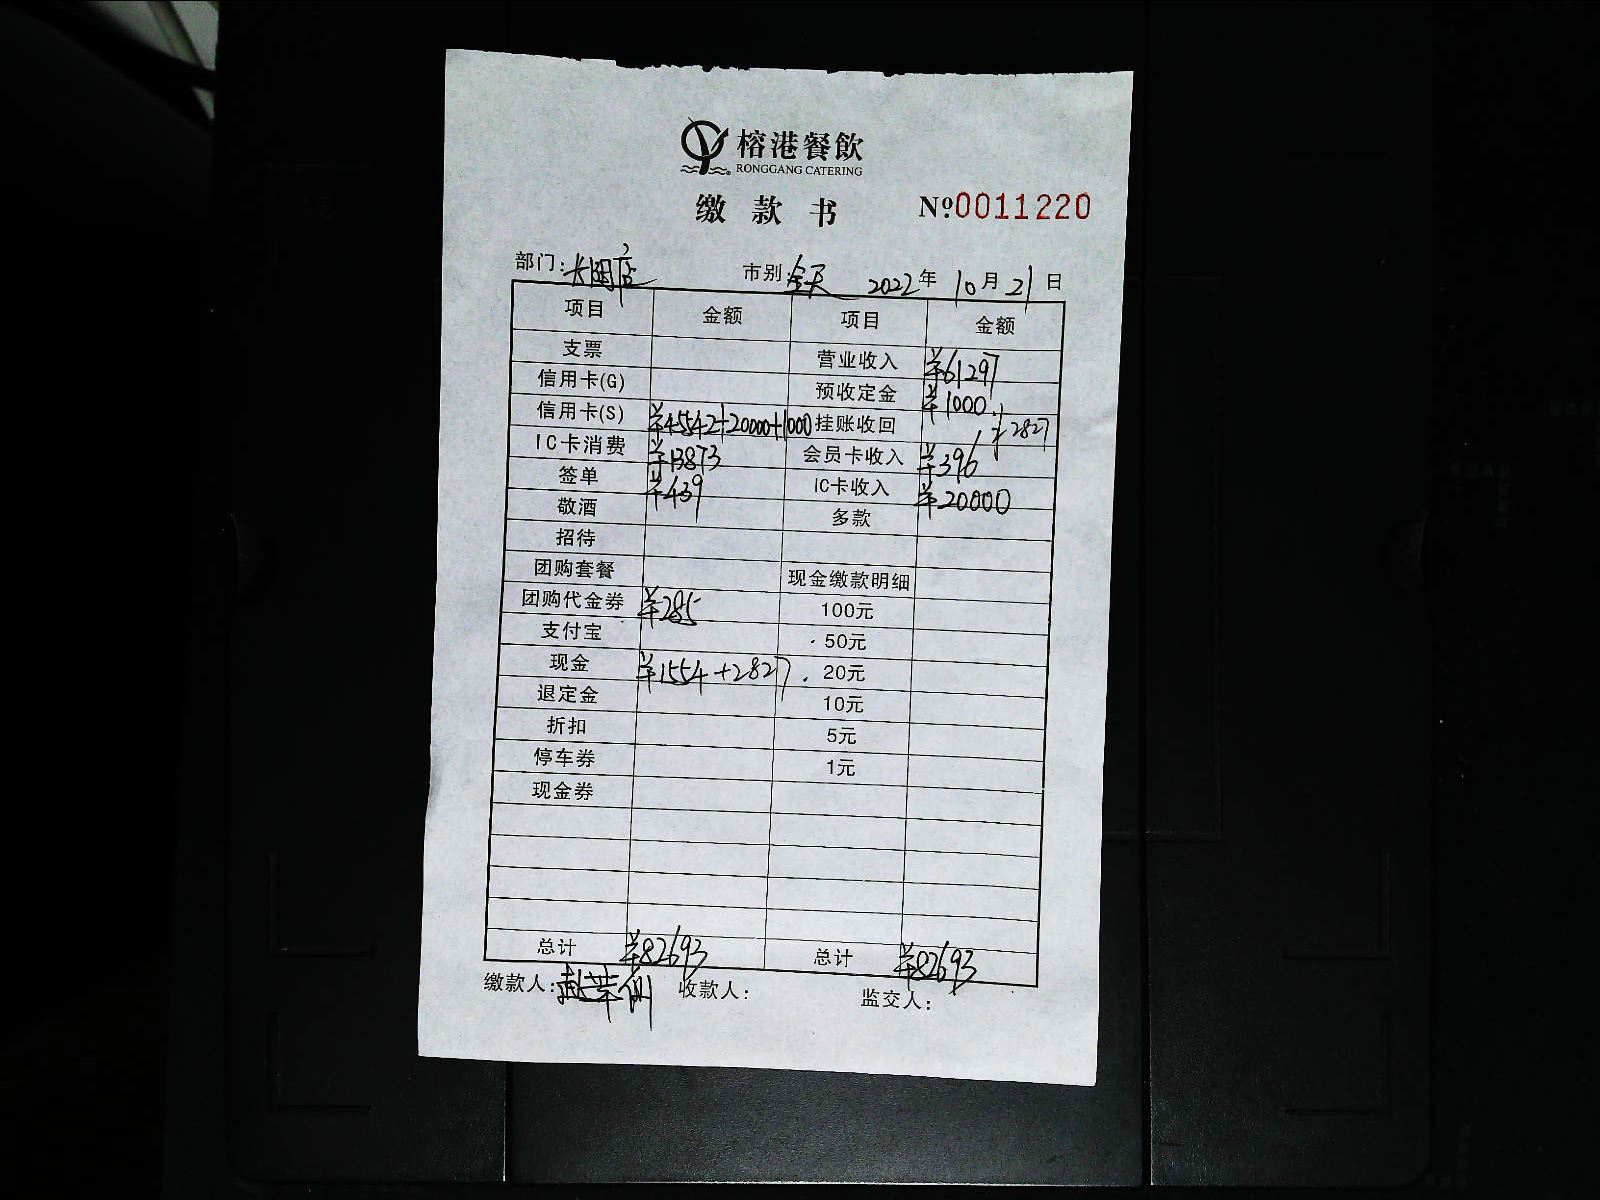 榕港餐飲
RONGGANG CATERING
缴款书 №0011220
部门: 长阳店 市别 全天 2022年10月21日
项目 金额 项目 金额
支票 营业收入 ¥61297
信用卡(G) 预收定金 ¥1000
信用卡(S) ¥45542+20000+1000 挂账收回 2827
IC卡消费 ¥13873 会员卡收入 ¥396
签单 ¥439 IC卡收入 ¥20000
敬酒 多款
招待
团购套餐 现金缴款明细
团购代金券 ¥285 100元
支付宝 50元
现金 ¥1554+2827 20元
退定金 10元
折扣 5元
停车券 1元
现金券
总计 ¥82693 总计 ¥82693
缴款人: 收款人: 监交人: